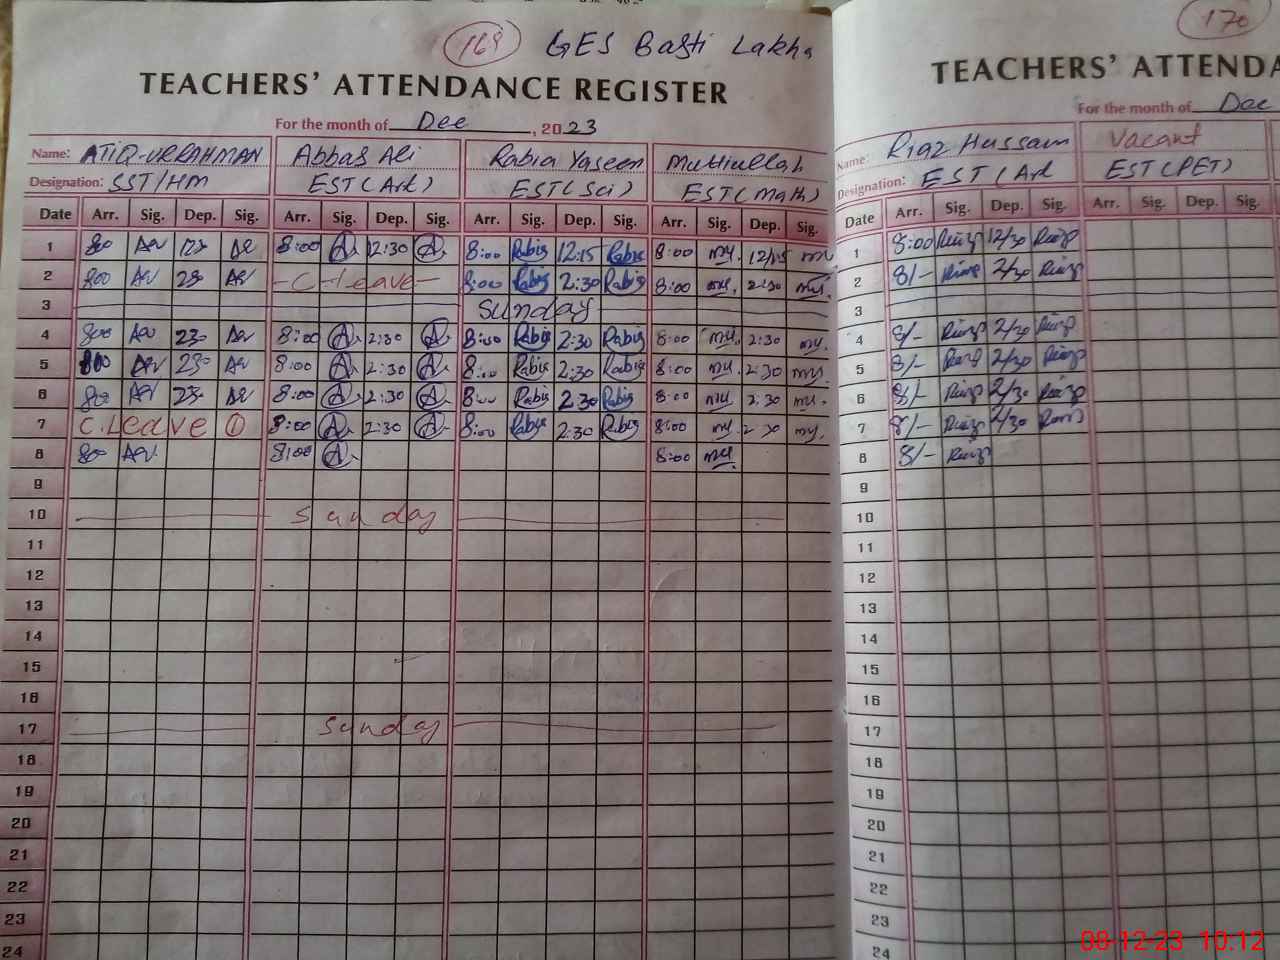 169 GES Basti Lakha
TEACHERS' ATTENDANCE REGISTER
For the month of Dec, 2023
Name: ATIQ-UR RAHMAN Abbas Ali Rabia Yaseen Mutiullah
Designation: SST/HM EST(Art) EST(Sci) EST(Math)
Date Arr. Sig. Dep. Sig. Arr. Sig. Dep. Sig. Arr. Sig. Dep. Sig. Arr. Sig. Dep. Sig.
1 800 8:00 A 12:30 A 8:00 Rabia 12:15 Rabia 8:00 my. 12/15 my
2 800 230 C-leave 8:00 Rabia 2:30 Rabia 8:00 my. 2:30 my.
3 Sunday
4 800 230 8:00 A 2:30 A 8:00 Rabia 2:30 Rabia 8:00 my. 2:30 my.
5 800 230 8:00 A 2:30 A 8:00 Rabia 2:30 Rabia 8:00 my. 2:30 my.
6 800 230 8:00 A 2:30 A 8:00 Rabia 2:30 Rabia 8:00 my 2:30 my.
7 C.Leave 1 8:00 A 2:30 A 8:00 Rabia 2:30 Rabia 8:00 my. 2 30 my.
8 800 8:00 A 8:00 my.
9
10 Sunday
11
12
13
14
15
16
17 Sunday
18
19
20
21
22
23
24
170
TEACHERS' ATTENDA
For the month of Dec
Name: Riaz Hussain Vacant
Designation: EST(Art EST(PET)
Date Arr. Sig. Dep. Sig. Arr. Sig. Dep. Sig.
1 8:00 Riaz 12/30 Riaz
2 8/- Riaz 2/30 Riaz
3
4 8/- Riaz 2/30 Riaz
5 8/- Riaz 2/30 Riaz
6 8/- Riaz 2/30 Riaz
7 8/- Riaz 2/30 Riaz
8 8/- Riaz
9
10
11
12
13
14
15
16
17
18
19
20
21
22
23
24
08-12-23 10:12